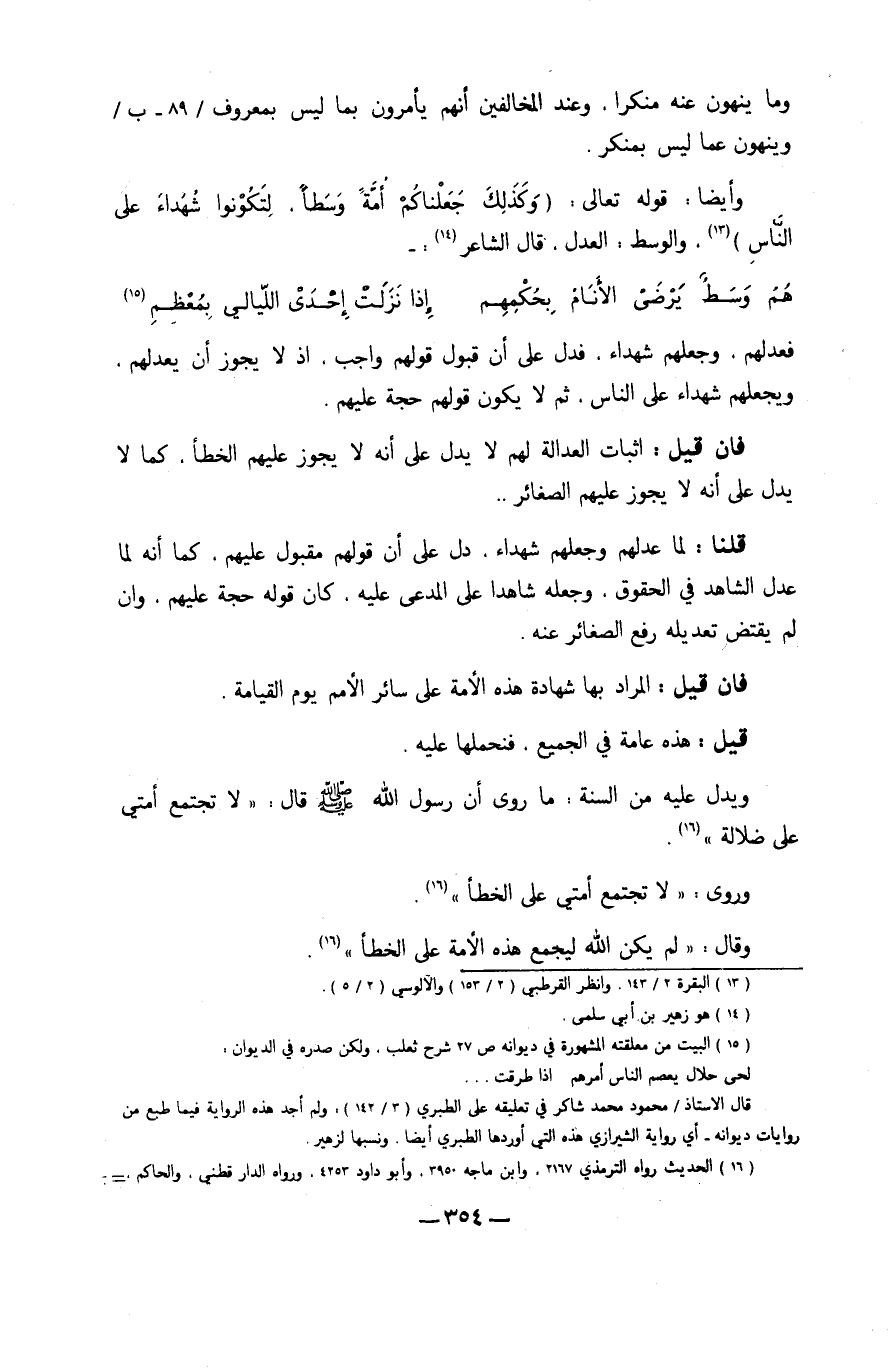 وما ينهون عنه منكرا ، وعند المخالفين أنهم يأمرون بما ليس بمعروف / ٨٩ ـ ب /
وينهون عما ليس بمنكر .
وأيضا : قوله تعالى : ( وَكَذَلِكَ جَعَلْناكُمْ أُمَّةً وَسَطاً ، لِتَكُوْنوا شُهُداءَ على
النَّاسِ )(١٣) ، والوسط : العدل ، قال الشاعر (١٤) : ـ
هُمُ وَسَـطٌ يَرْضَىْ الأَنَـامُ بِحُكْمِهِـم إذا نَزَلَـتْ إحْـدَىْ اللّيالـي بِمُعْظَـمِ (١٥)
فعدلهم ، وجعلهم شهداء ، فدل على أن قبول قولهم واجب ، اذ لا يجوز أن يعدلهم ،
ويجعلهم شهداء على الناس ، ثم لا يكون قولهم حجة عليهم .
فان قيل : اثبات العدالة لهم لا يدل على أنه لا يجوز عليهم الخطأ ، كما لا
يدل على أنه لا يجوز عليهم الصغائر ..
قلنا : لما عدلهم وجعلهم شهداء ، دل على أن قولهم مقبول عليهم ، كما أنه لما
عدل الشاهد في الحقوق ، وجعله شاهدا على المدعى عليه ، كان قوله حجة عليهم ، وان
لم يقتض تعديله رفع الصغائر عنه .
فان قيل : المراد بها شهادة هذه الأمة على سائر الأمم يوم القيامة .
قيل : هذه عامة في الجميع ، فنحملها عليه .
ويدل عليه من السنة : ما روى أن رسول الله ﷺ قال : « لا تجتمع أمتي
على ضلالة »(١٦) .
وروى : « لا تجتمع أمتي على الخطأ »(١٦) .
وقال : « لم يكن الله ليجمع هذه الأمة على الخطأ »(١٦) .
( ١٣ ) البقرة ٢ / ١٤٣ ، وانظر القرطبي ( ٢ / ١٥٣ ) والآلوسي ( ٢ / ٥ ) .
( ١٤ ) هو زهير بن أبي سلمى .
( ١٥ ) البيت من معلقته المشهورة في ديوانه ص ٢٧ شرح ثعلب ، ولكن صدره في الديوان :
لحى حلال يعصم الناس أمرهم اذا طرقت . . .
قال الاستاذ / محمود محمد شاكر في تعليقه على الطبري ( ٣ / ١٤٢ ) ، ولم أجد هذه الرواية فيما طبع من
روايات ديوانه ـ أي رواية الشيرازي هذه التي أوردها الطبري أيضا ، ونسبها لزهير .
( ١٦ ) الحديث رواه الترمذي ٢١٦٧ ، وابن ماجه ٣٩٥٠ ، وأبو داود ٤٢٥٣ ، ورواه الدار قطني ، والحاكم ، =
— ٣٥٤ —